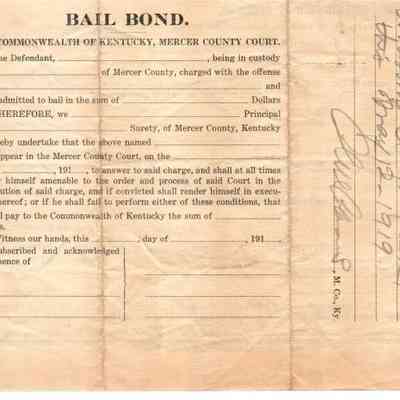 BAIL BOND.
COMMONWEALTH OF KENTUCKY, MERCER COUNTY COURT.
he Defendant, , being in custody
of Mercer County, charged with the offense
and
admitted to bail in the sum of Dollars
HEREFORE, we Principal
Surety, of Mercer County, Kentucky
eby undertake that the above named
appear in the Mercer County Court, on the
, 191 , to answer to said charge, and shall at all times
r himself amenable to the order and process of said Court in the
ution of said charge, and if convicted shall render himself in execu-
hereof; or if he shall fail to perform either of these conditions, that
l pay to the Commonwealth of Kentucky the sum of
s.
Witness our hands, this day of , 191
ubscribed and acknowledged
sence of
this May 12-1919
, M. Co., Ky.